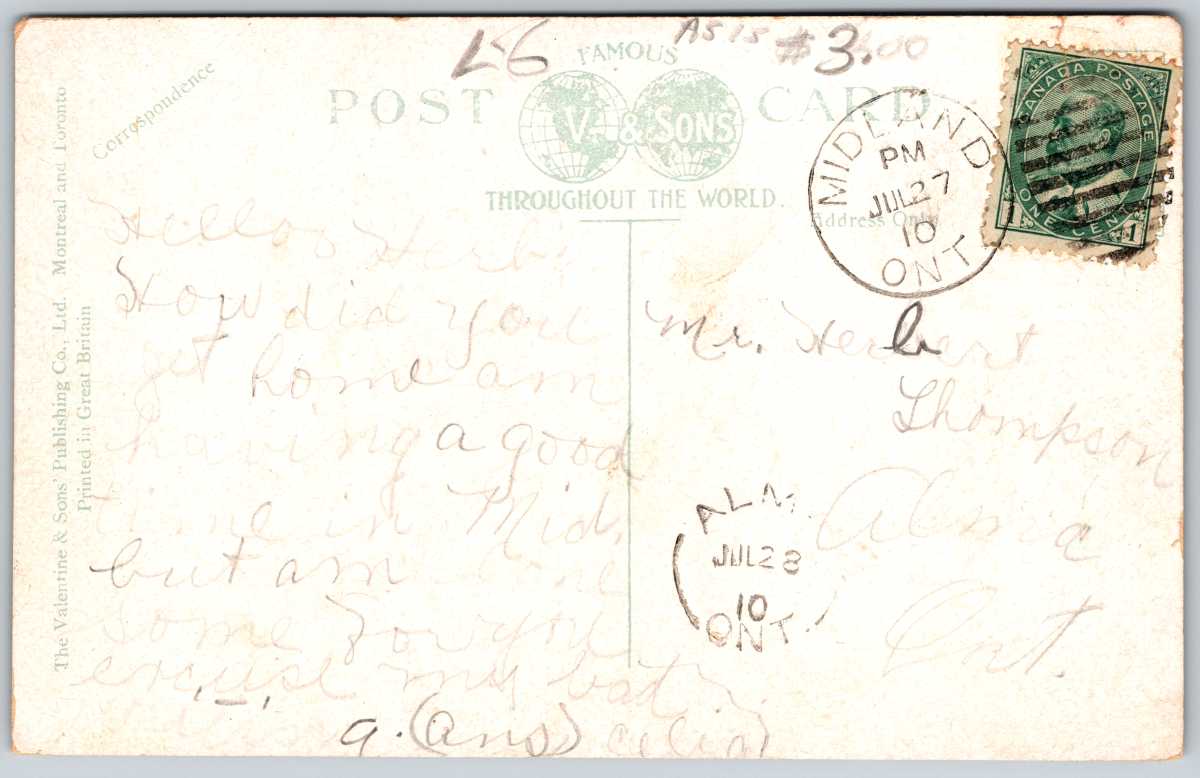 L-6
As is #3.00
FAMOUS
POST CARD
V. & SONS
THROUGHOUT THE WORLD.
Correspondence
Address Only
The Valentine & Sons' Publishing Co., Ltd. Montreal and Toronto
Printed in Great Britain
CANADA POSTAGE
ONE CENT
1 1
MIDLAND
PM
JUL 27
10
ONT
Hello Herb.
How did you
get home am
having a good
time in Mid.
but am
some for you
excuse my
a. (ans)
Mr. Herbert
Thompson
Alma
Ont.
ALM
JUL 28
10
ONT.